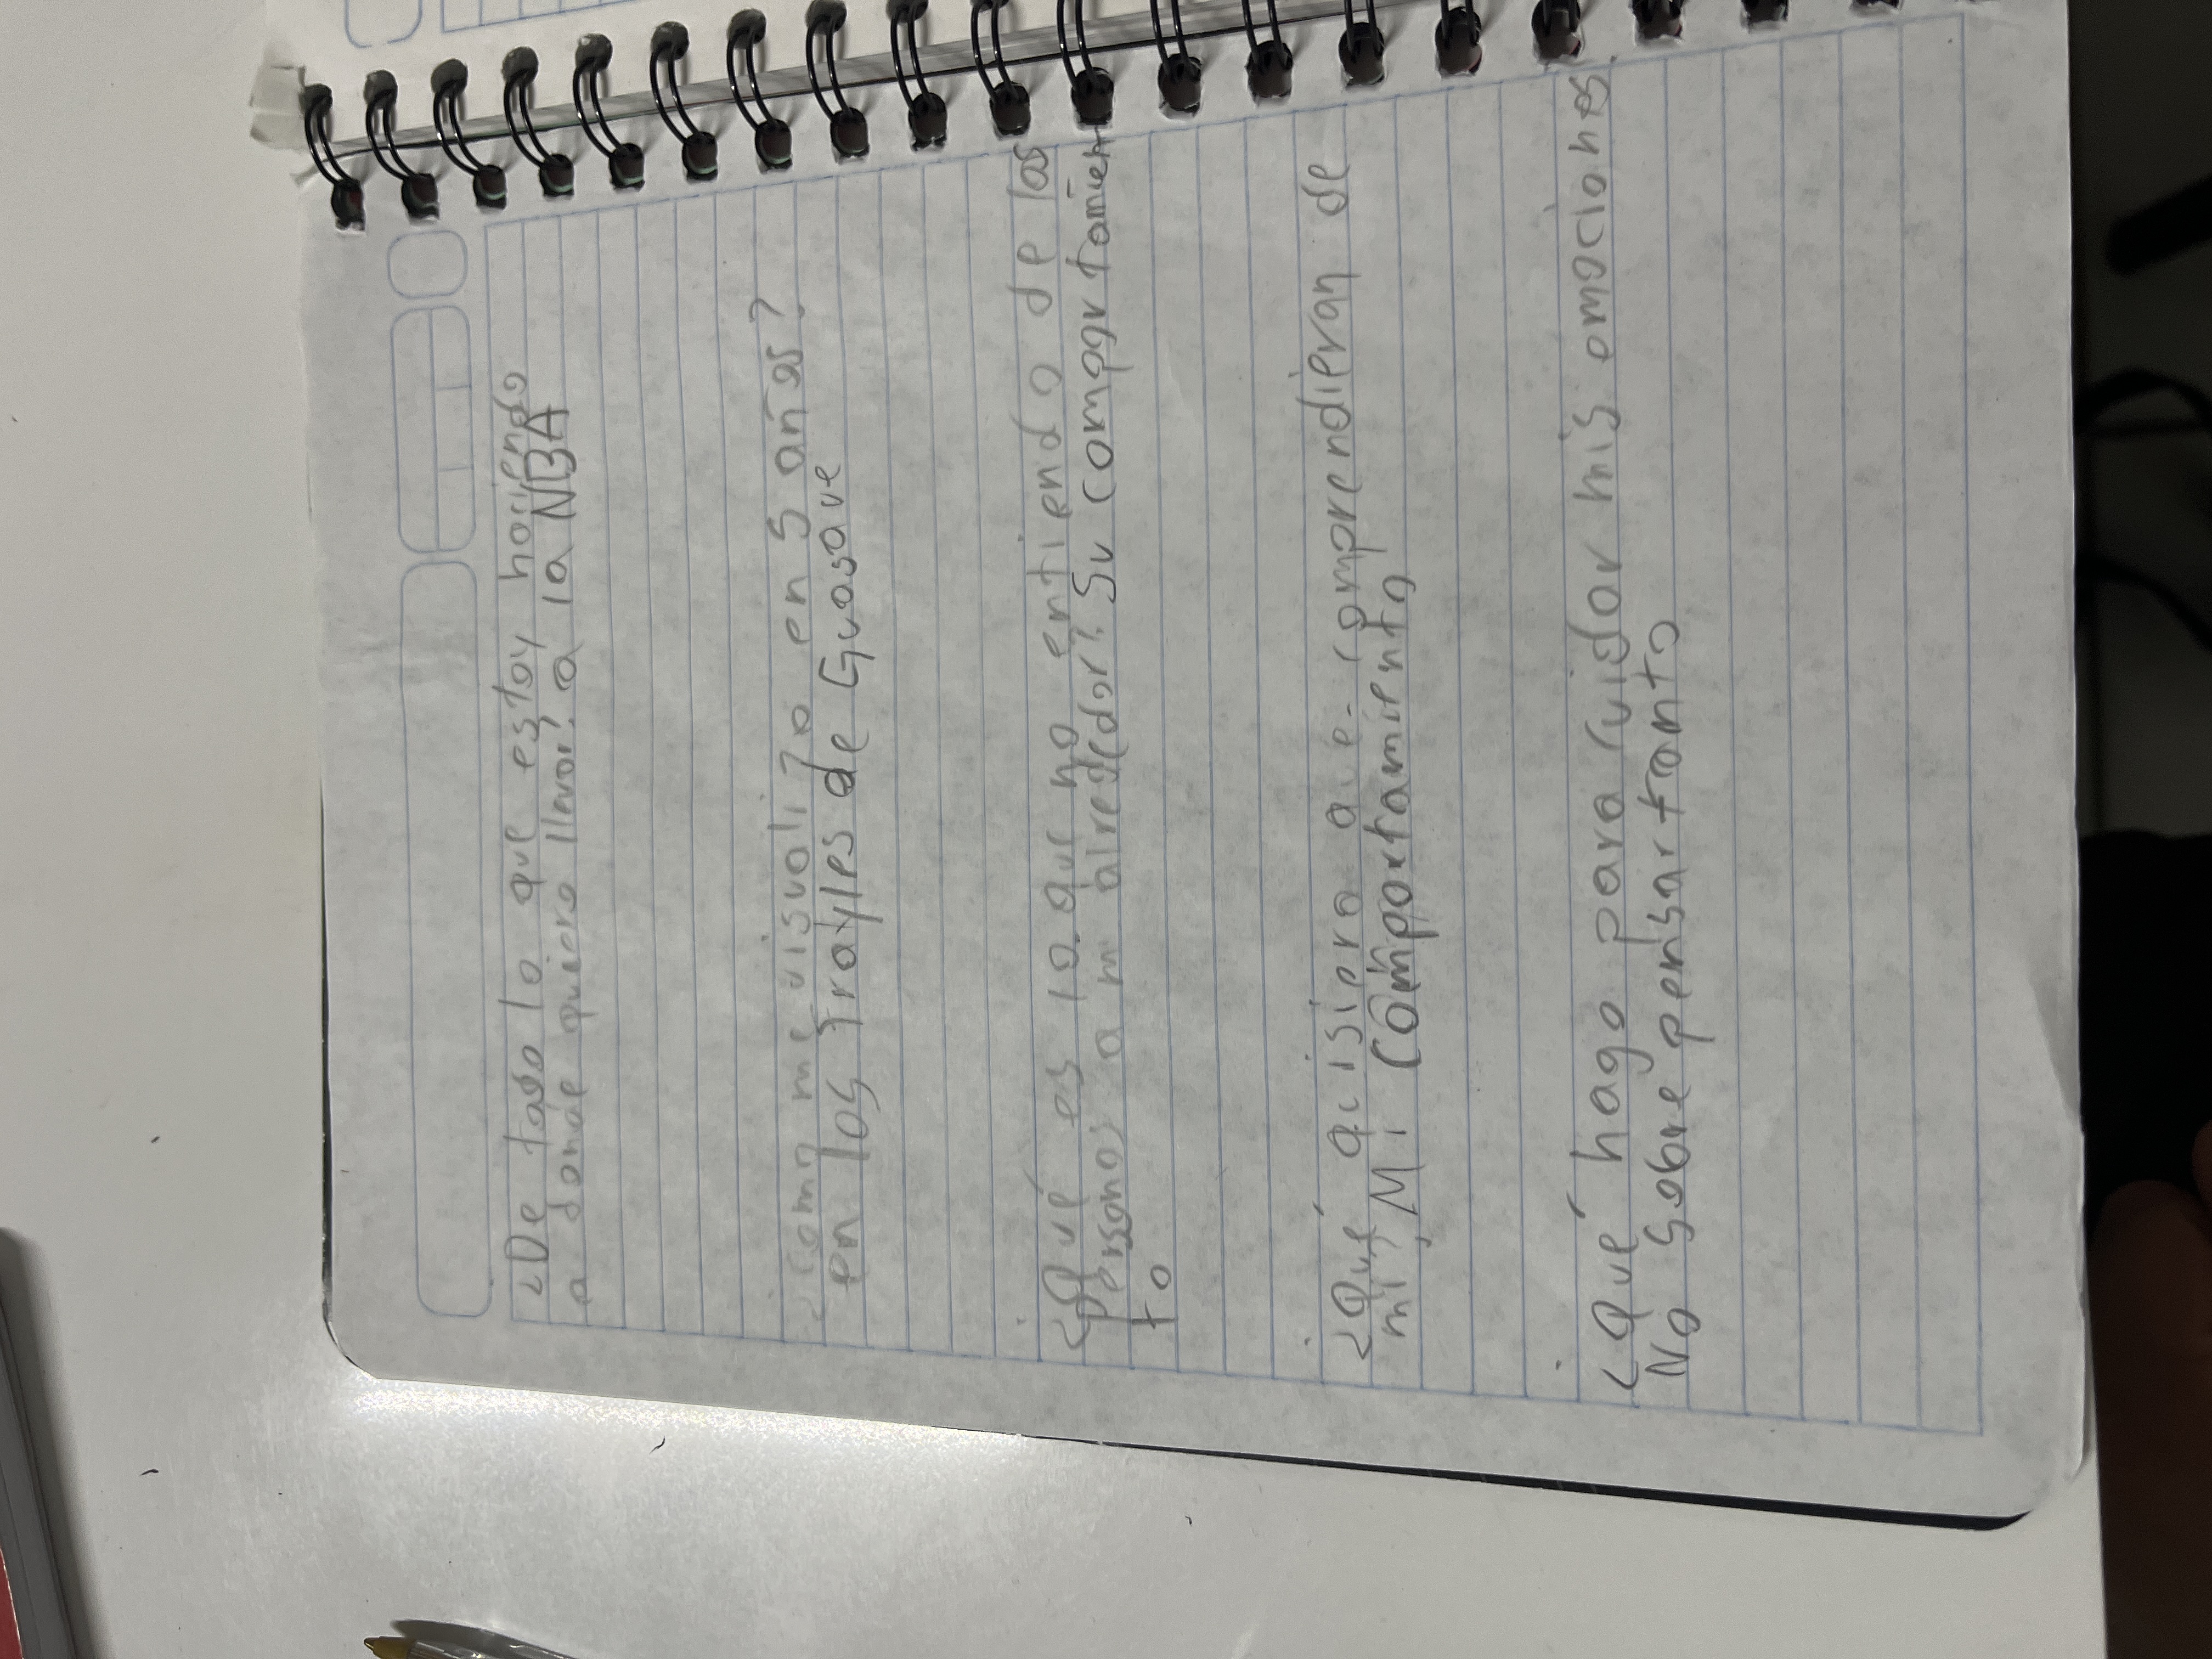 ¿De todo lo que estoy haciendo
a donde quiero llevar? a la NBA
¿como me visualizo en 5 años?
en los frayles de Guasave
¿Qué es lo que no entiendo de las
personas a mi alrededor? Su comportamien
to
¿Qué quisiera que comprendieran de
mi? Mi comportamiento
¿Qué hago para cuidar mis emociones
No sobre pensar tanto